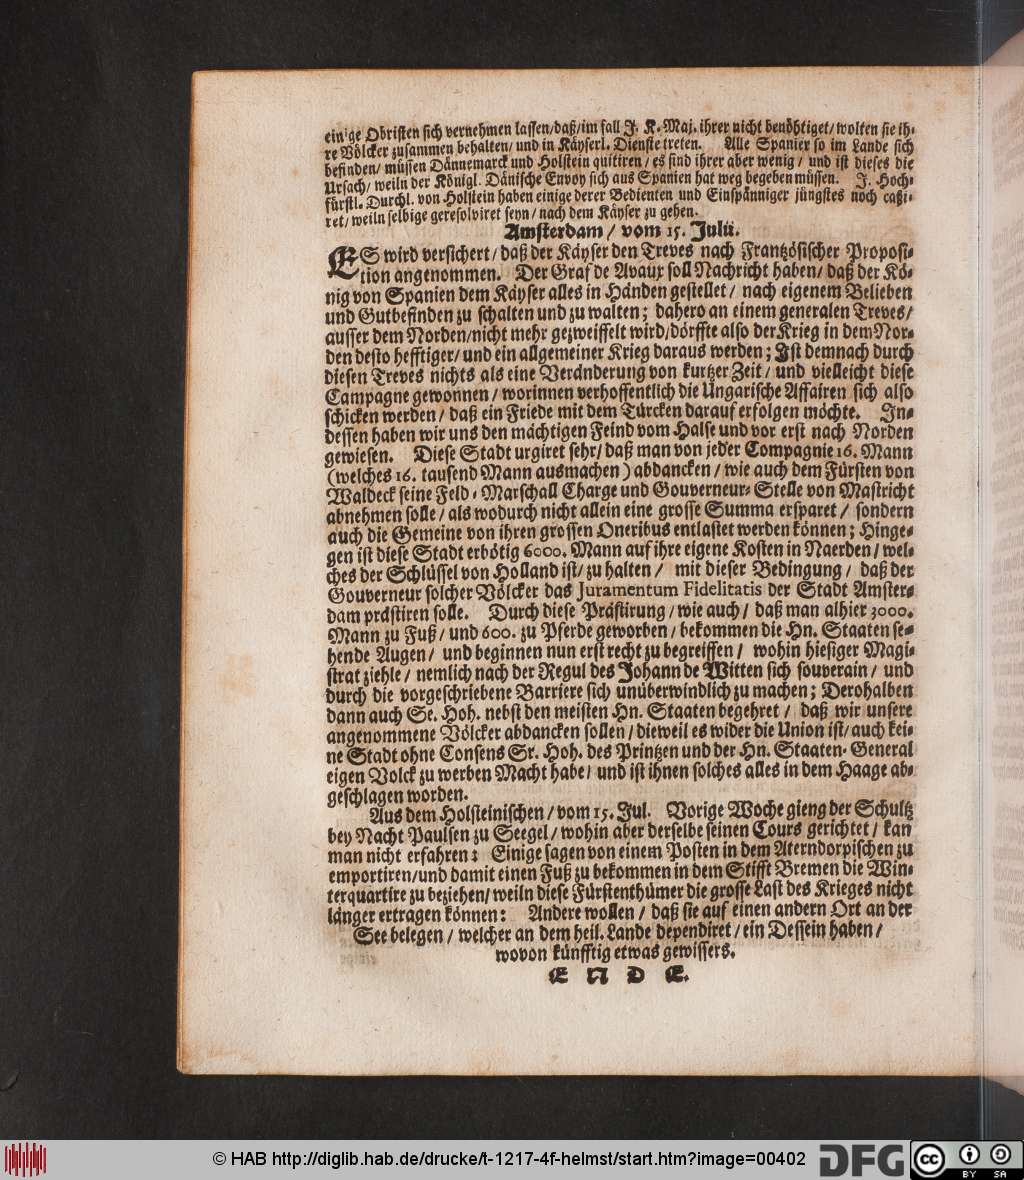 einige Obristen sich vernehmen lassen/daß/im fall J. K. Maj. ihrer nicht benöhtiget/wolten sie ih-
re Völcker zusammen behalten/und in Käyserl. Dienste treten. Alle Spanier so im Lande sich
befinden/müssen Dännemarck und Holstein quitiren/es sind ihrer aber wenig/und ist dieses die
Ursach/weiln der Königl. Dänische Envoy sich aus Spanien hat weg begeben müssen. J. Hoch-
fürstl. Durchl. von Holstein haben einige derer Bedienten und Einspänniger jüngstes noch cassi-
ret/weiln selbige geresolviret seyn/nach dem Käyser zu gehen.
Amsterdam/vom 15. Julii.
ES wird versichert/daß der Käyser den Treves nach Frantzösischer Proposi-
tion angenommen. Der Graf de Avaux soll Nachricht haben/daß der Kö-
nig von Spanien dem Käyser alles in Händen gestellet/nach eigenem Belieben
und Gutbefinden zu schalten und zu walten; dahero an einem generalen Treves/
ausser dem Norden/nicht mehr gezweiffelt wird/dörffte also der Krieg in dem Nor-
den desto hefftiger/und ein allgemeiner Krieg daraus werden; Ist demnach durch
diesen Treves nichts als eine Verändung von kurtzer Zeit/und vielleicht diese
Campagne gewonnen/worinnen verhoffentlich die Ungarische Affairen sich also
schicken werden/daß ein Friede mit dem Türcken darauf erfolgen möchte. In-
dessen haben wir uns den mächtigen Feind vom Halse und vor erst nach Norden
gewiesen. Diese Stadt urgiret sehr/daß man von jeder Compagnie 16. Mann
(welches 16. tausend Mann ausmachen) abdancken/wie auch dem Fürsten von
Waldeck seine Feld-Marschall Charge und Gouverneur-Stelle von Mastricht
abnehmen solle/als wodurch nicht allein eine grosse Summa ersparet/sondern
auch die Gemeine von ihren grossen Oneribus entlastet werden können; Hinge-
gen ist diese Stadt erbötig 6000. Mann auf ihre eigene Kosten in Naerden/wel-
ches der Schlüssel von Holland ist/zu halten/mit dieser Bedingung/daß der
Gouverneur solcher Völcker das Juramentum Fidelitatis der Stadt Amster-
dam prästiren solle. Durch diese Prästirung/wie auch/daß man alhier 3000.
Mann zu Fuß/und 600. zu Pferde geworben/bekommen die Hn. Staaten se-
hende Augen/und beginnen nun erst recht zu begreiffen/wohin hiesiger Magi-
strat ziehle/nemlich nach der Regul des Johann de Witten sich souverain/und
durch die vorgeschriebene Barriere sich unüberwindlich zu machen; Derohalben
dann auch Se. Hoh. nebst den meisten Hn. Staaten begehret/daß wir unsere
angenommene Völcker abdancken sollen/dieweil es wider die Union ist/auch kei-
ne Stadt ohne Consens Sr. Hoh. des Printzen und der Hn. Staaten-General
eigen Volck zu werben Macht habe/und ist ihnen solches alles in dem Haage ab-
geschlagen worden.
Aus dem Holsteinischen/vom 15. Jul. Vorige Woche gieng der Schultz
bey Nacht Paulsen zu Seegel/wohin aber derselbe seinen Cours gerichtet/kan
man nicht erfahren: Einige sagen von einem Posten in dem Aterndorpischen zu
emportiren/und damit einen Fuß zu bekommen in dem Stifft Bremen die Win-
terquartire zu beziehen/weiln diese Fürstenthümer die grosse Last des Krieges nicht
länger ertragen können: Andere wollen/daß sie auf einen andern Ort an der
See belegen/welcher an dem heil. Lande dependiret/ein Dessein haben/
wovon künfftig etwas gewissers.
ENDE.
© HAB http://diglib.hab.de/drucke/t-1217-4f-helmst/start.htm?image=00402
DFG
cc BY SA